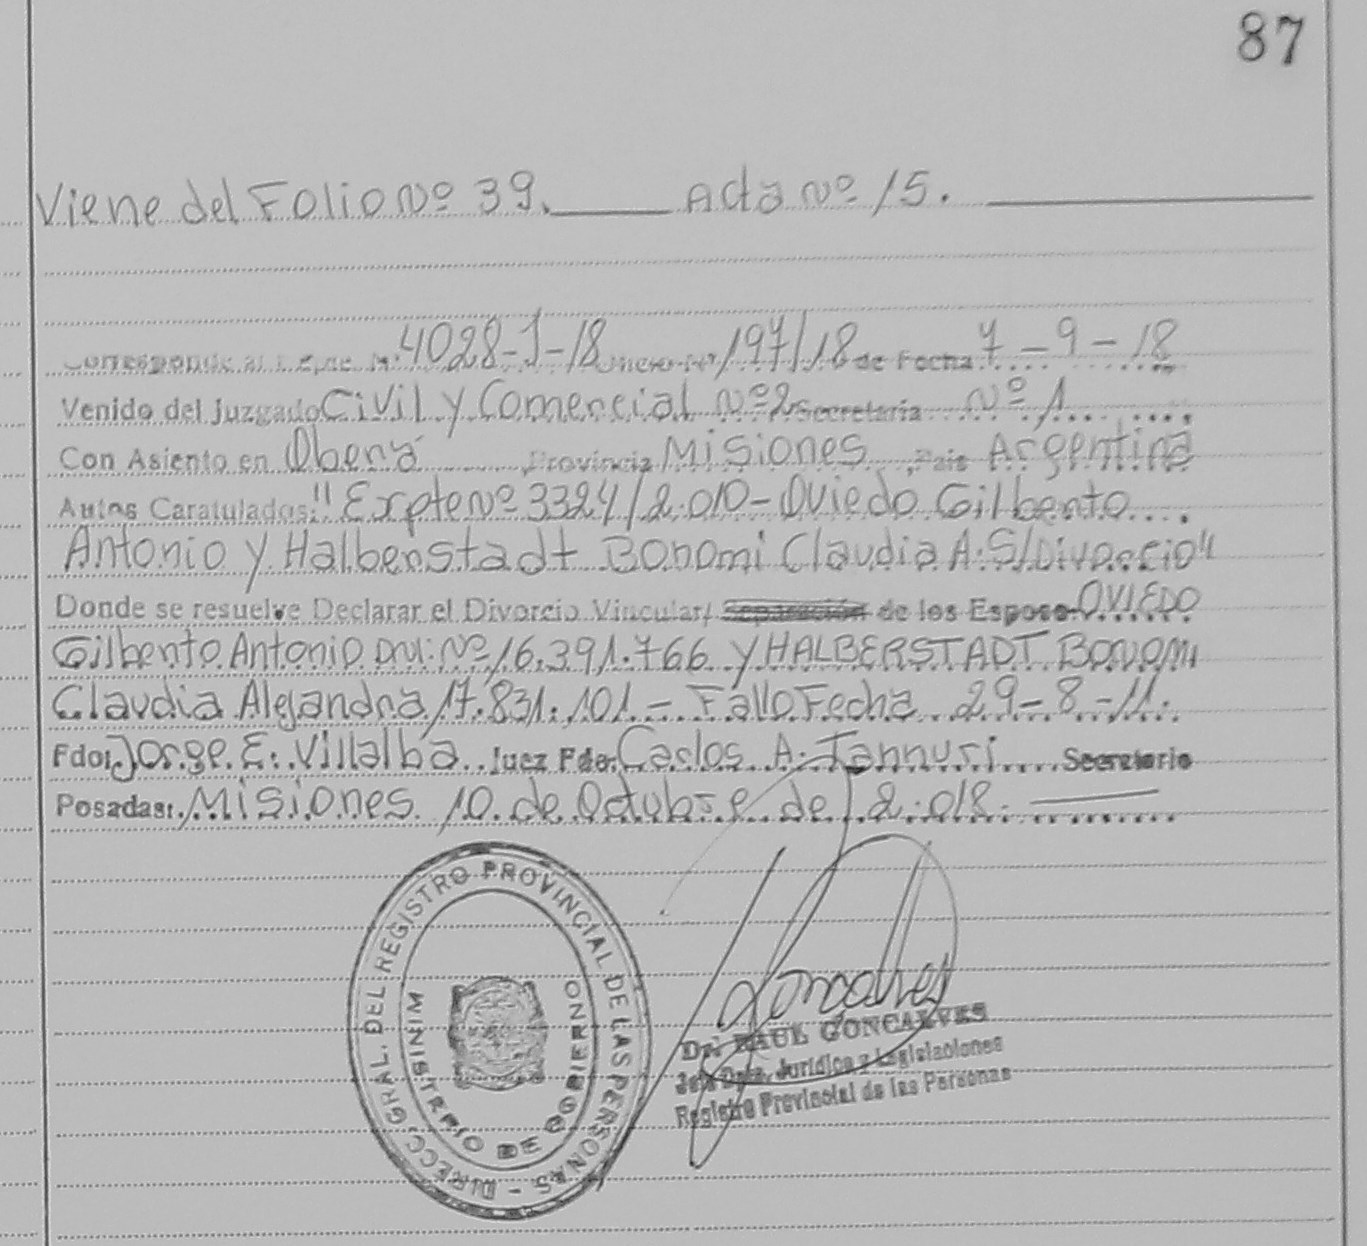 87
Viene del Folio Nº 39. Acta Nº 15.
Corresponde al Expte Nº 4028-J-18 Oficio Nº 197/18 de Fecha 7-9-18
Venido del Juzgado Civil y Comercial Nº 2 Secretaria Nº 1
Con Asiento en Oberá, Provincia Misiones, Pais Argentina
Autos Caratulados: "Expte Nº 3324/2.010-Oviedo Gilberto
Antonio y Halberstadt Bonomi Claudia A. S/Divorcio"
Donde se resuelve Declarar el Divorcio Vincular/ Separación de los Esposo OVIEDO
Gilberto Antonio DNI: Nº 16.391.766 Y HALBERSTADT BONOMI
Claudia Alejandra 17.831.101.- Fallo Fecha 29-8-11.
Fdo: Jorge E. Villalba Juez Fdo: Carlos A. Iannuri Secretario
Posadas: Misiones 10 de Octubre de 2.018.
DIRECC. GRAL. DEL REGISTRO PROVINCIAL DE LAS PERSONAS -
MINISTERIO DE GOBIERNO
Goncalves
Dr. RAUL GONCALVES
Jefe Dpto. Jurídico y Legislaciones
Registro Provincial de las Personas